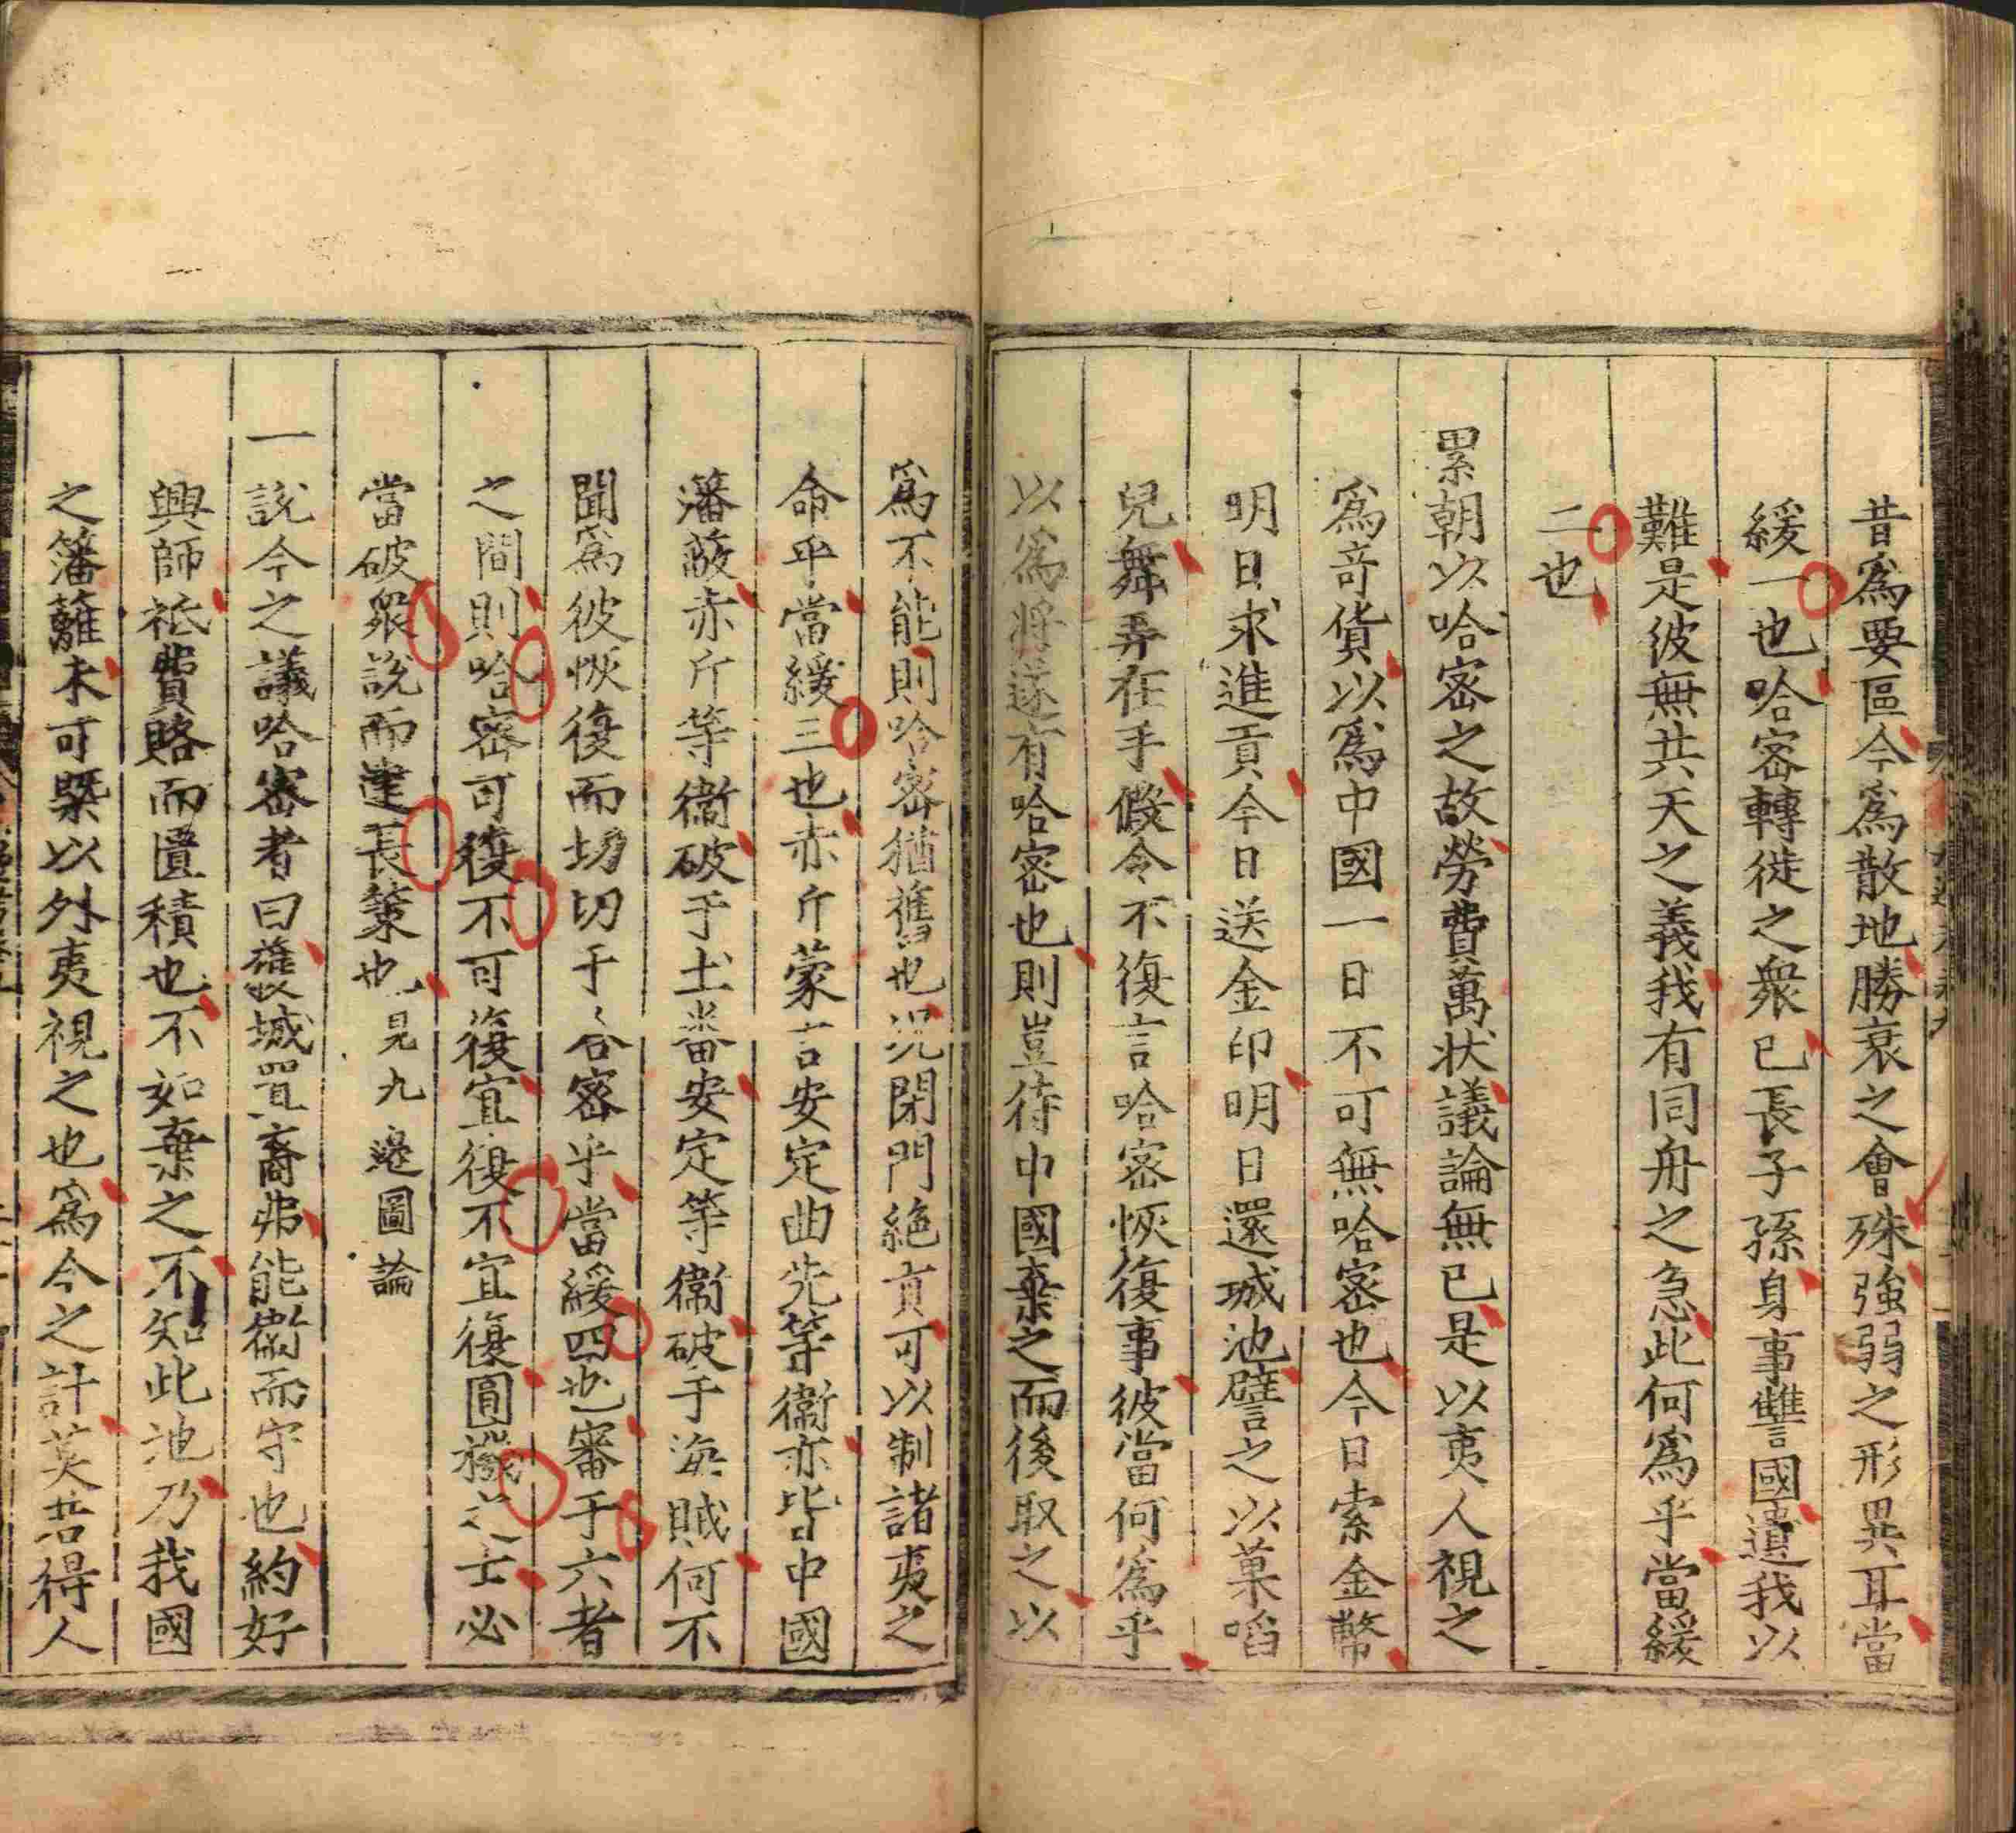 昔爲要區今爲散地勝衰之會殊強弱之形異耳當
緩一也哈密轉徙之衆已長子孫身事讐國遺我以
難是彼無共天之義我有同舟之急此何爲乎當緩
二也
累朝以哈密之故勞費萬狀議論無已是以夷人視之
爲竒貨以爲中國一日不可無哈密也今日索金幣
明日求進貢今日送金印明日還城池譬之以菓啗
兒舞弄在手假令不復言哈密恢復事彼當何爲乎
以爲將遂有哈密也則豈待中國棄之而後取之以
爲不能則哈密猶舊也况閉門絶貢可以制諸夷之
命乎當緩三也赤斤蒙古安定曲先等衞亦皆中國
藩蔽赤斤等衞破于土番安定等衞破于海賊何不
聞爲彼恢復而切切于哈密乎當緩四也審于六者
之間則哈密可復不可復宜復不宜復圓機之士必
當破衆說而建長策也見九邊圖論
一說今之議哈密者曰護城置裔弗能衞而守也約好
興師祗費賂而匱積也不如棄之不知此地乃我國
之籓籬未可槩以外夷視之也爲今之計莫若得人